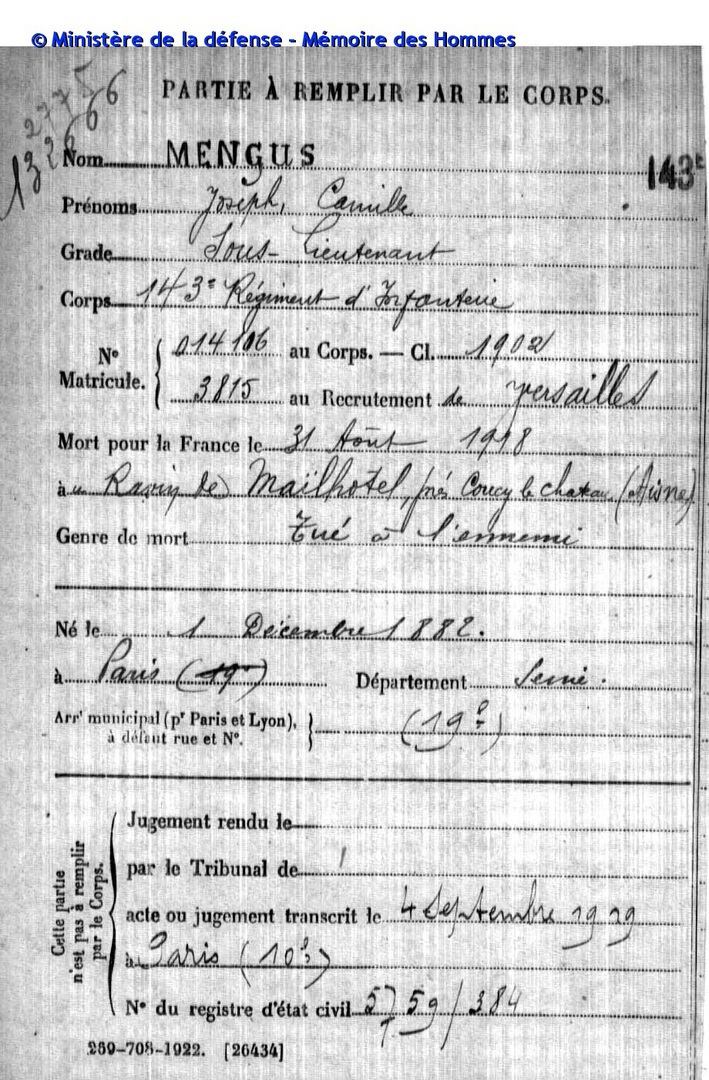 © Ministère de la défense - Mémoire des Hommes
PARTIE À REMPLIR PAR LE CORPS.
Nom MENGUS
143e
Prénoms Joseph, Camille
Grade Sous-Lieutenant
Corps 143e Régiment d'Infanterie
No Matricule. { 014106 au Corps. — Cl. 1902
3815 au Recrutement de Versailles
Mort pour la France le 31 Août 1918
à Ravin de Maïlhotel, près Coucy le chateau (Aisne)
Genre de mort Tué à l'ennemi
Né le 1 Décembre 1882.
à Paris (19e) Département Seine.
Arrt municipal (pr Paris et Lyon), à défaut rue et No. } (19e)
Cette partie n'est pas à remplir par le Corps.
Jugement rendu le
par le Tribunal de
acte ou jugement transcrit le 4 Septembre 1919
à Paris (10e)
No du registre d'état civil 5759/384
269-708-1922. [26434]